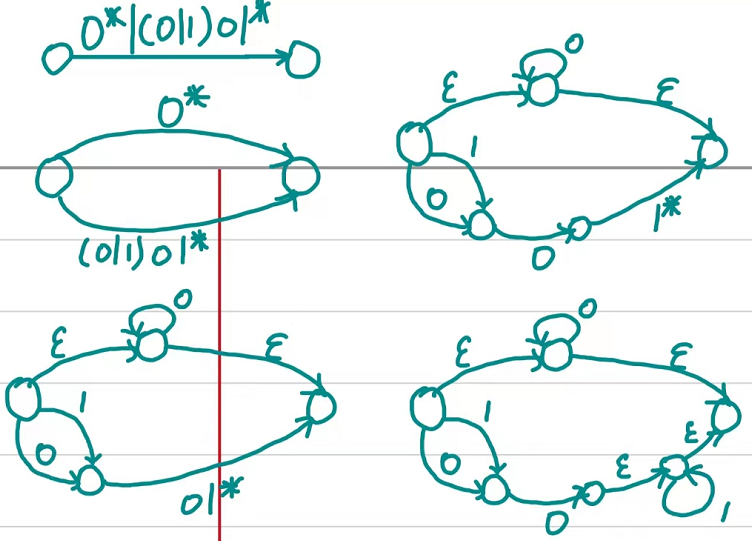 0*|(0|1)01*
0*
(0|1)01*
ε 0 ε
1
0
0 1*
ε 0 ε
1
0
01*
ε 0 ε
1
0
0 ε 1 ε